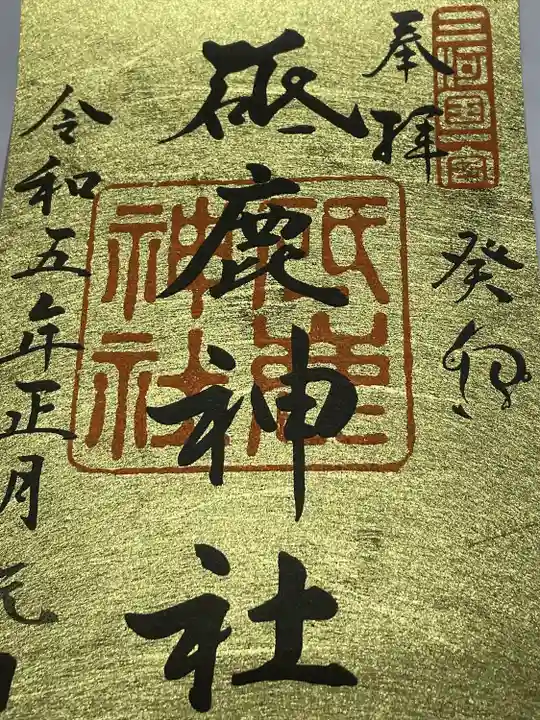 三河国一宮
奉拝
癸卯
砥鹿神社
砥鹿神社
令和五年正月元日